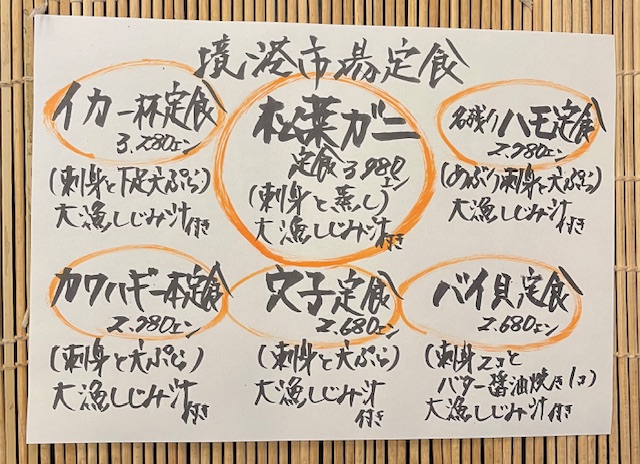 境港市場定食
イカ一杯定食
3,280エン
(刺身と下足天ぷら)
大漁しじみ汁付き
松葉ガニ
定食3,980エン
(刺身と蒸し)
大漁しじみ汁付き
名残りハモ定食
2,980エン
(あぶり刺身と天ぷら)
大漁しじみ汁付き
カワハギ一本定食
2,980エン
(刺身と天ぷら)
大漁しじみ汁付き
穴子定食
2,680エン
(刺身と天ぷら)
大漁しじみ汁付き
バイ貝定食
2,680エン
(刺身2コと
バター醤油焼き1コ)
大漁しじみ汁付き